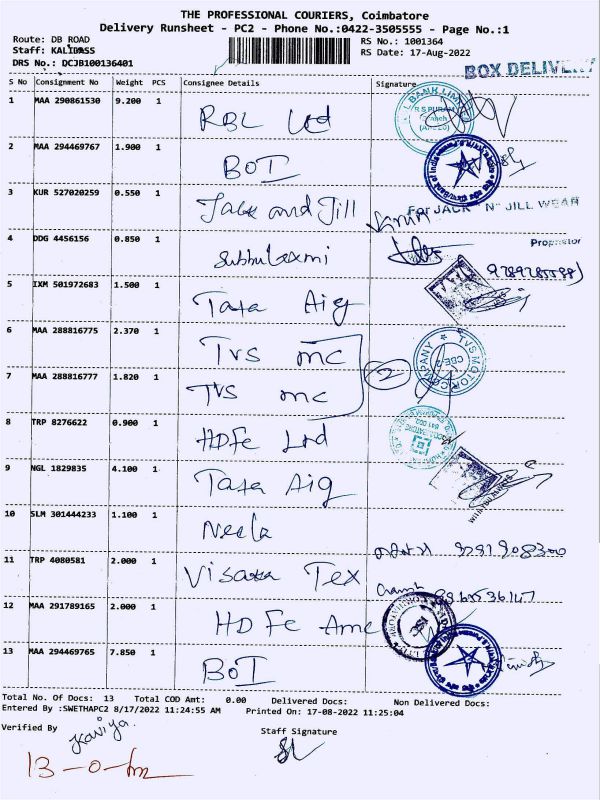 THE PROFESSIONAL COURIERS, Coimbatore
Delivery Runsheet - PC2 - Phone No.:0422-3505555 - Page No.:1
Route: DB ROAD
Staff: KALIDASS
DRS No.: DCJB100136401
RS No.: 1001364
RS Date: 17-Aug-2022
BOX DELIVERY
S No Consignment No Weight PCS Consignee Details Signature
1 MAA 290861530 9.200 1 RBL Ltd
2 MAA 294469767 1.900 1 BOI
3 KUR 527020259 0.550 1 Jack and Jill
For JACK "N" JILL WEAR
4 DDG 4456156 0.850 1 Subbulaxmi
Proprietor
5 IXM 501972683 1.500 1 Tata Aig
6 MAA 288816775 2.370 1 TVS mc
2
TVS MOTOR COMPANY
CBE-2
7 MAA 288816777 1.820 1 TVS mc
8 TRP 8276622 0.900 1 HDFc Ltd
9 NGL 1829835 4.100 1 Tata Aig
WITH YOU ALWAYS
10 SLM 301444233 1.100 1 Neela
11 TRP 4080581 2.000 1 Visaka Tex
12 MAA 291789165 2.000 1 HDFc Amc
13 MAA 294469765 7.850 1 BOI
Total No. Of Docs: 13 Total COD Amt: 0.00 Delivered Docs: Non Delivered Docs:
Entered By :SWETHAPC2 8/17/2022 11:24:55 AM Printed On: 17-08-2022 11:25:04
Verified By Staff Signature
Kaviya.